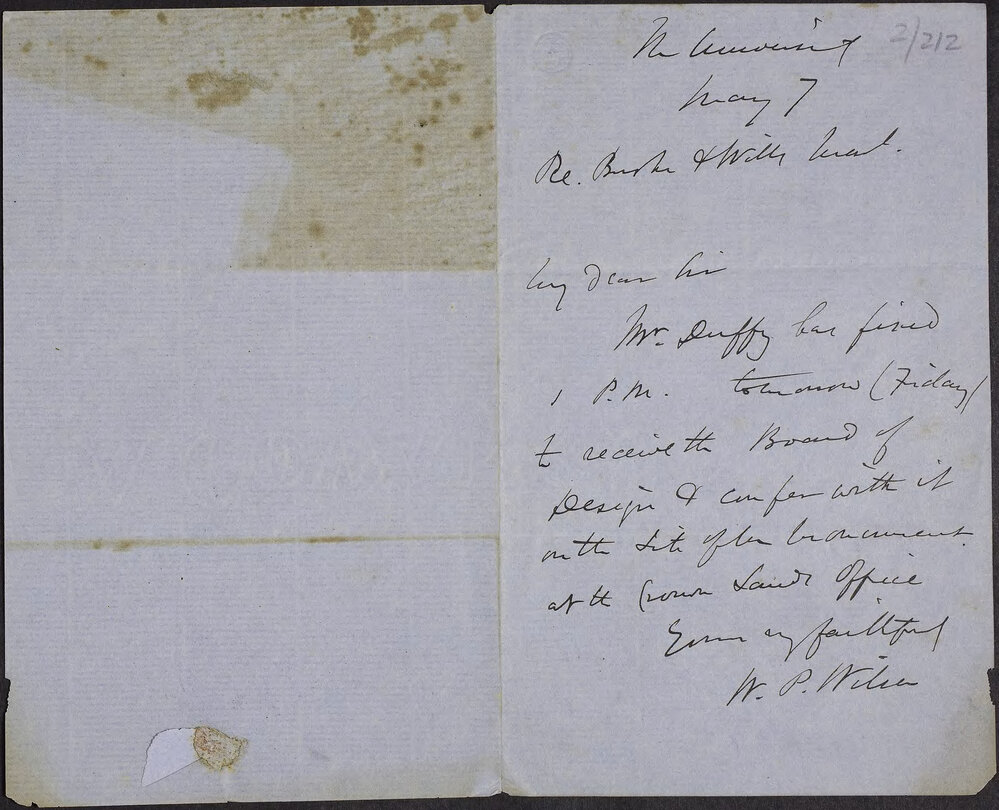 The University
2/212
May 7
Re. Burke & Wills Mont.
My dear Sir
Mr. Duffy has fixed
1 P.M. tomorrow (Friday)
to receive the Board of
Design & confer with it
on the site of the Monument
at the Crown Lands Office
Yours vy faithful
W. P. Wilson